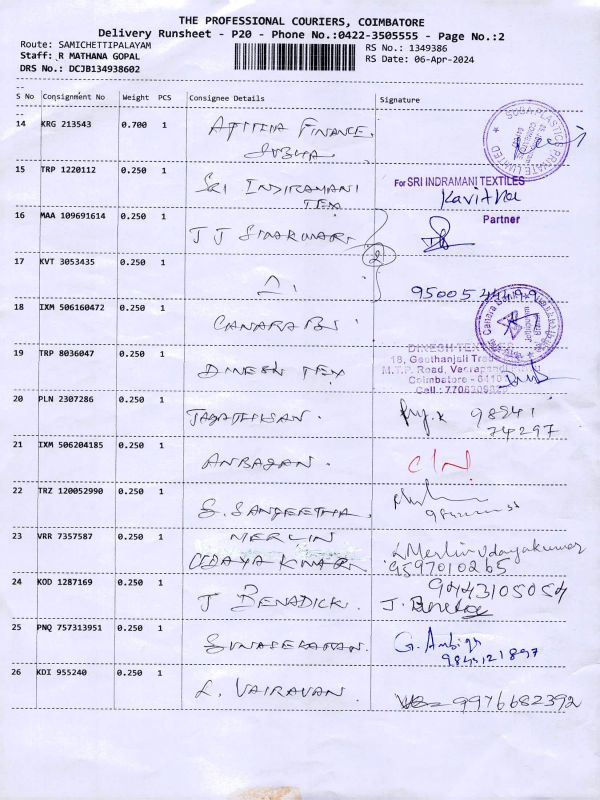 THE PROFESSIONAL COURIERS, COIMBATORE
Delivery Runsheet - P20 - Phone No.:0422-3505555 - Page No.:2
Route: SAMICHETTIPALAYAM
RS No.: 1349386
Staff: R MATHANA GOPAL
RS Date: 06-Apr-2024
DRS No.: DCJB134938602
--
S No Consignment No Weight PCS Consignee Details Signature
--
14 KRG 213543 0.700 1 FINANCE.
15 TRP 1220112 0.250 1 SRI INDIRAMANI For SRI INDRAMANI TEXTILES
TEX Kavitha
Partner
16 MAA 109691614 0.250 1 J J
17 KVT 3053435 0.250 1
18 IXM 506160472 0.250 1 CANARA
19 TRP 8036047 0.250 1 DINESH TEX DINESH
18, Geethanjali
M.T.P. Road,
Coimbatore -
20 PLN 2307286 0.250 1 98941
74297
21 IXM 506204185 0.250 1 ANBAZAN. C/N
22 TRZ 120052990 0.250 1 S. SANGEETHA.
23 VRR 7357587 0.250 1 MERLIN
UDAYA KUMAR Merlin Udayakumar
9597010265
24 KOD 1287169 0.250 1 J BENADICK. 9443105054
J.
25 PNQ 757313951 0.250 1 GUNASEKARAN. G. Ambiga
9843121897
26 KDI 955240 0.250 1 L. VAIRAVAN. 9976682392